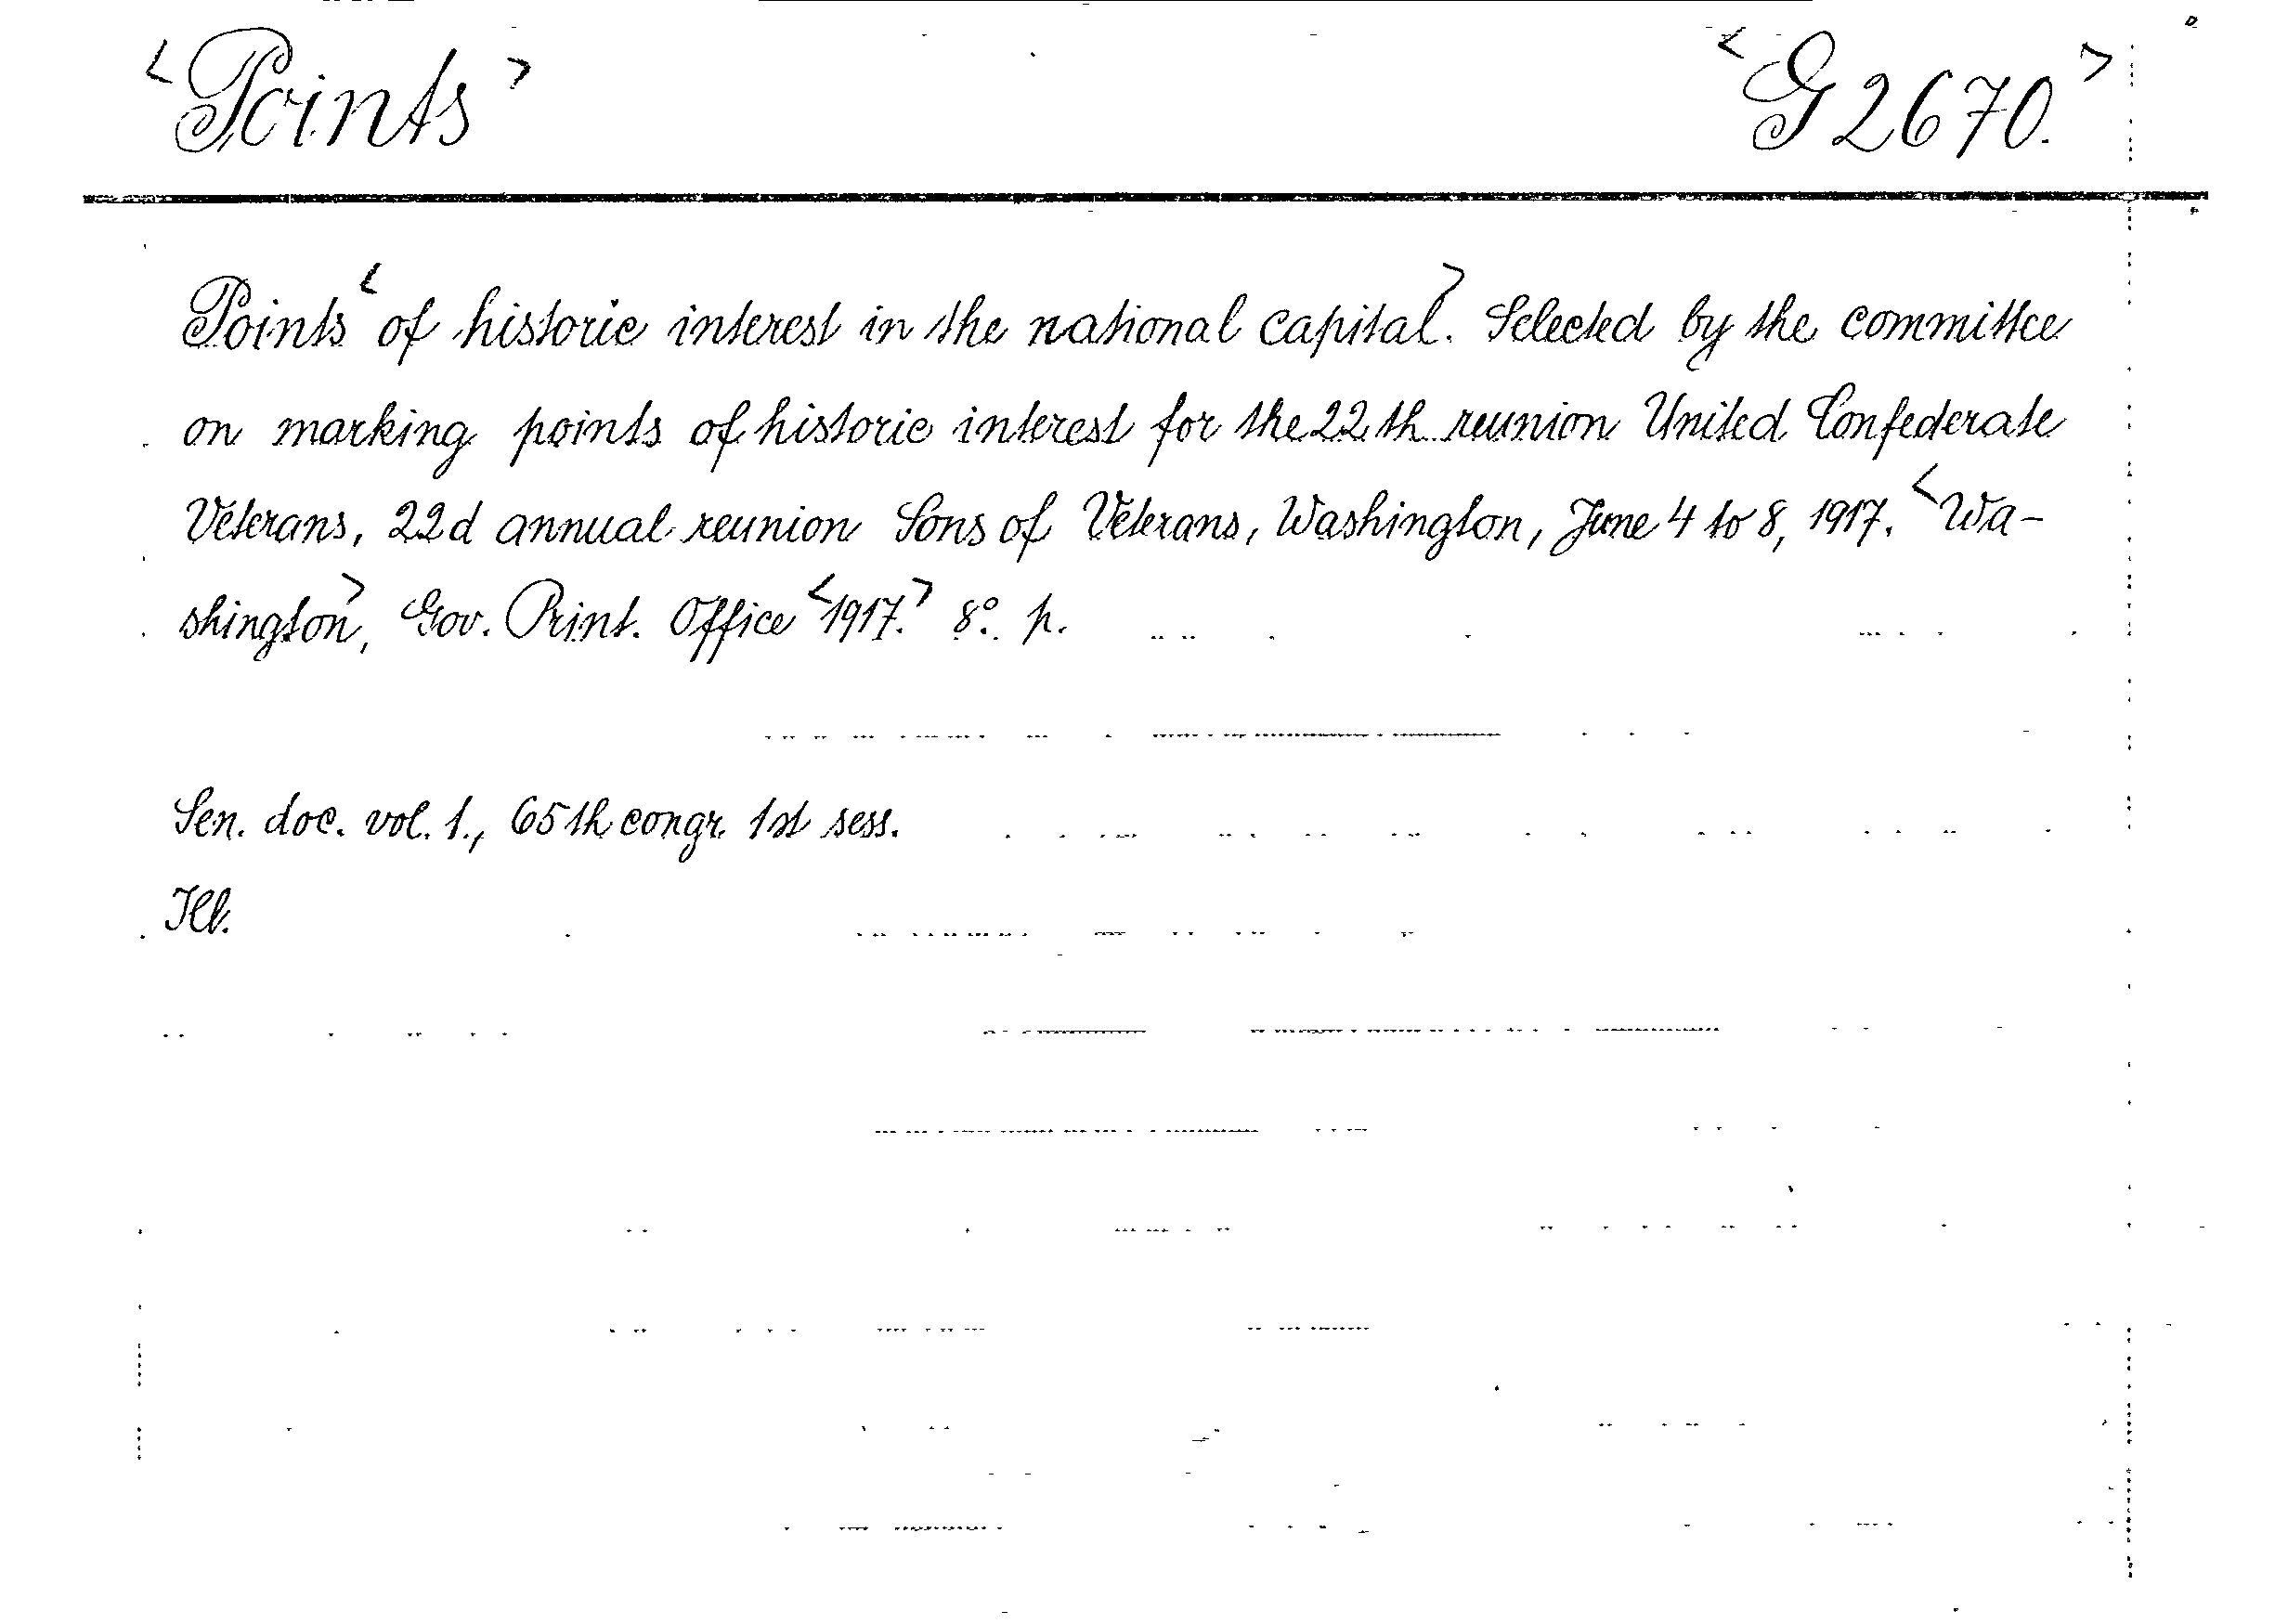 <Points> <G 2670.>
Points <of historic interest in the national capital>. Selected by the committee
on marking points of historic interest for the 22th reunion United Confederate
Veterans, 22d annual reunion Sons of Veterans, Washington, June 4 to 8, 1917. <Wa-
shington>, Gov. Print. Office <1917.> 8°. p.
Sen. doc. vol. 1., 65th congr. 1st sess.
Ill.